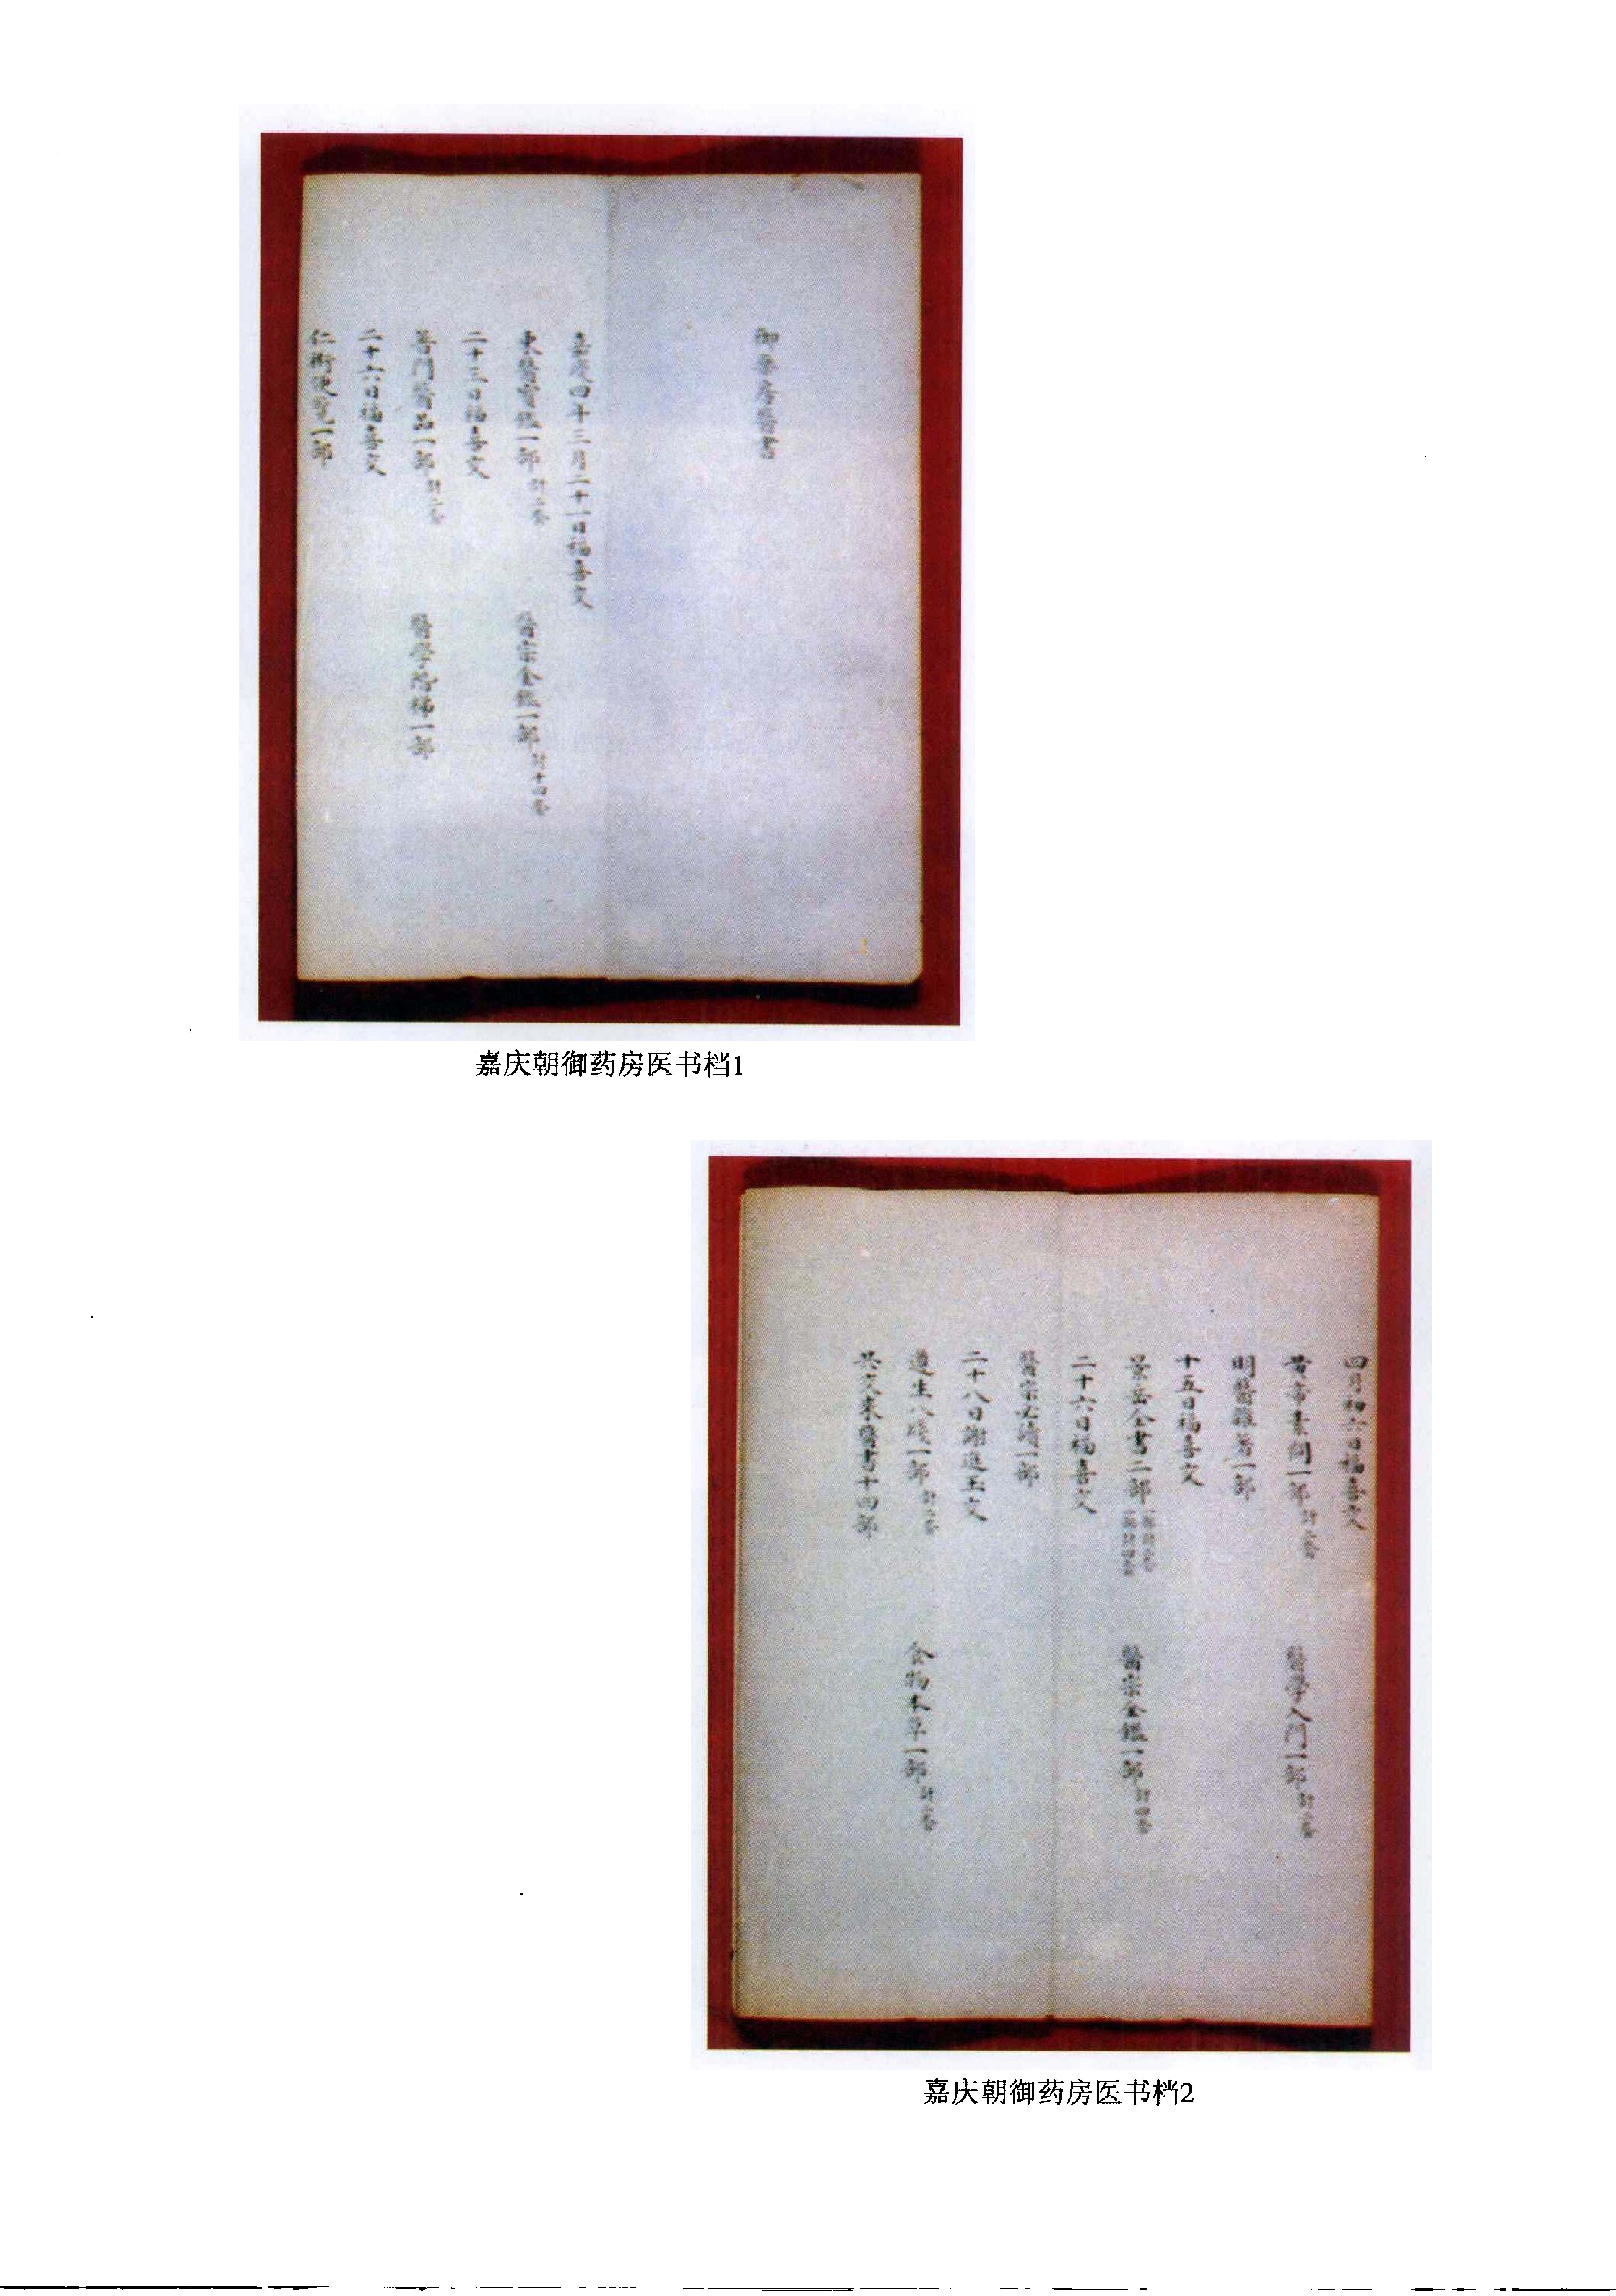 御藥房醫書
嘉慶四年三月二十一日福喜交
東醫寶鑑一部 計二套 醫宗金鑑一部 計十四套
二十三日福喜交
普門醫品一部 計二套 醫學階梯一部
二十六日福喜交
仁術便覽一部
嘉庆朝御药房医书档1
四月初六日福喜交
黃帝素問一部 計二套 醫學入門一部 計二套
明醫雜著一部
十五日福喜交
景岳全書二部 醫宗金鑑一部 計四套
二十六日福喜交
醫宗必讀一部
二十八日謝進玉交
遵生八牋一部 計二套 食物本草一部
共交來醫書十四部
嘉庆朝御药房医书档2